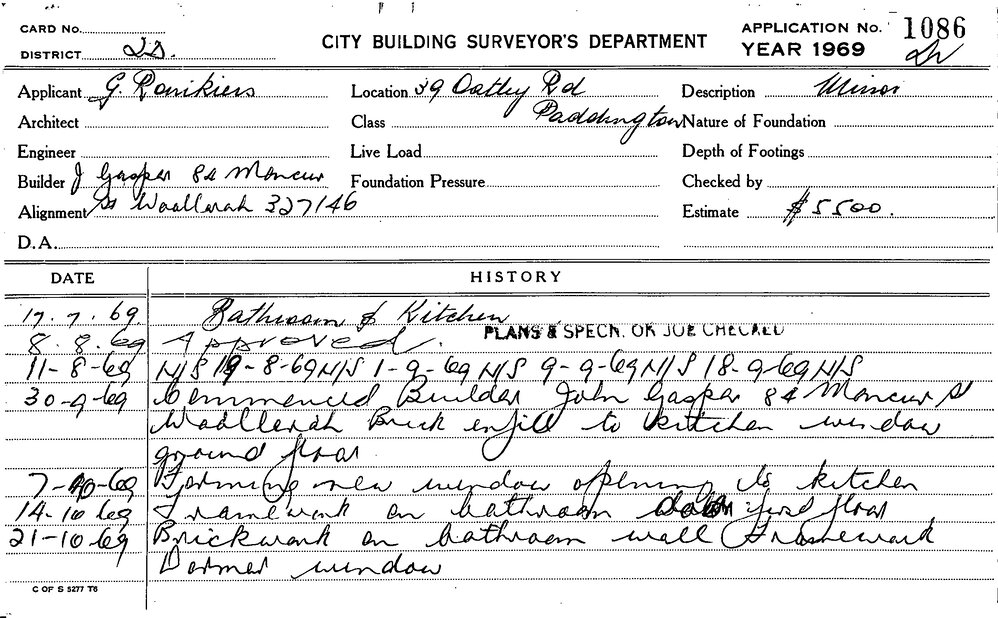 CARD No.
DISTRICT
CITY BUILDING SURVEYOR'S DEPARTMENT
APPLICATION No. 1086
YEAR 1969
Applicant G.
Location 39 Oatley Rd
Paddington
Description Minor
Architect
Class
Nature of Foundation
Engineer
Live Load
Depth of Footings
Builder J Gaspar 84 Moncur
Foundation Pressure
Checked by
Alignment St Woollerah 327146
Estimate $5500.
D.A.
DATE HISTORY
17.7.69. Bathroom & Kitchen
PLANS & SPECN. OK JOB CHECKED
8.8.69 Approved.
11-8-69 N/S 19-8-69 N/S 1-9-69 N/S 9-9-69 N/S 18-9-69 N/S
30-9-69 Commenced Builder John Gaspar 84 Moncur St
Woollerah Brick enfill to kitchen window
ground floor
7-10-69 Forming new window opening to kitchen
14-10-69 Framework on bathroom first floor
21-10-69 Brickwork on bathroom wall Framework
Dormer window
C OF S 5277 T6